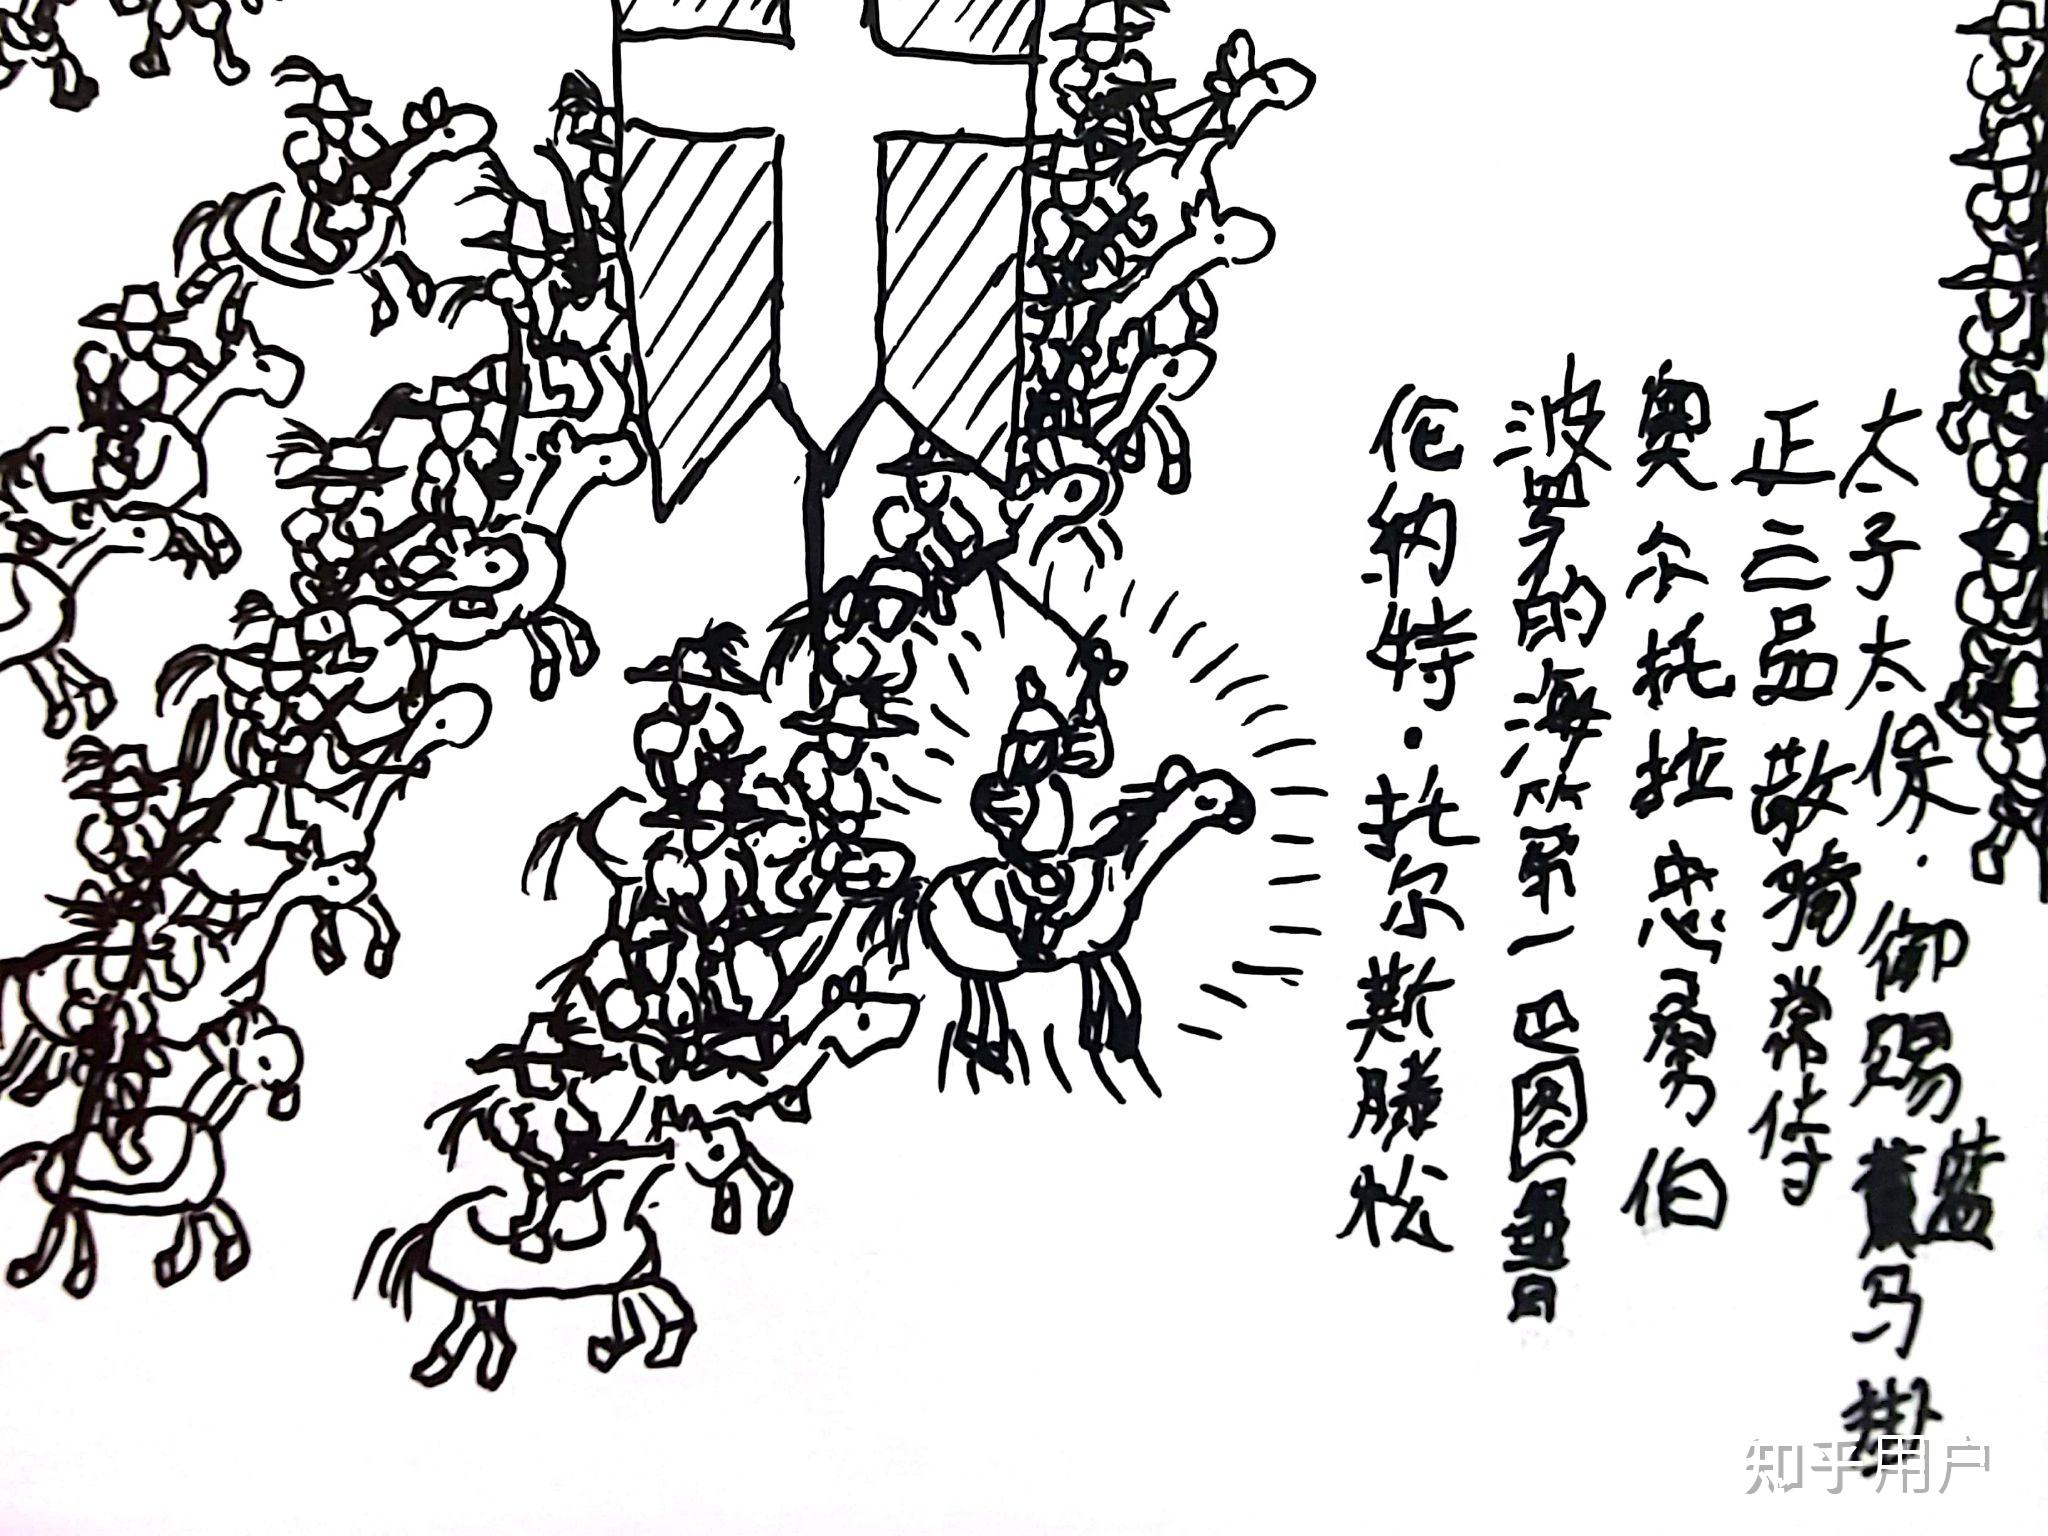 太子太保·御赐蓝马褂
正三品散骑常侍
奥尔托拉忠勇伯
波罗的海第一巴图鲁
伦纳特·托尔斯滕松
知乎用户